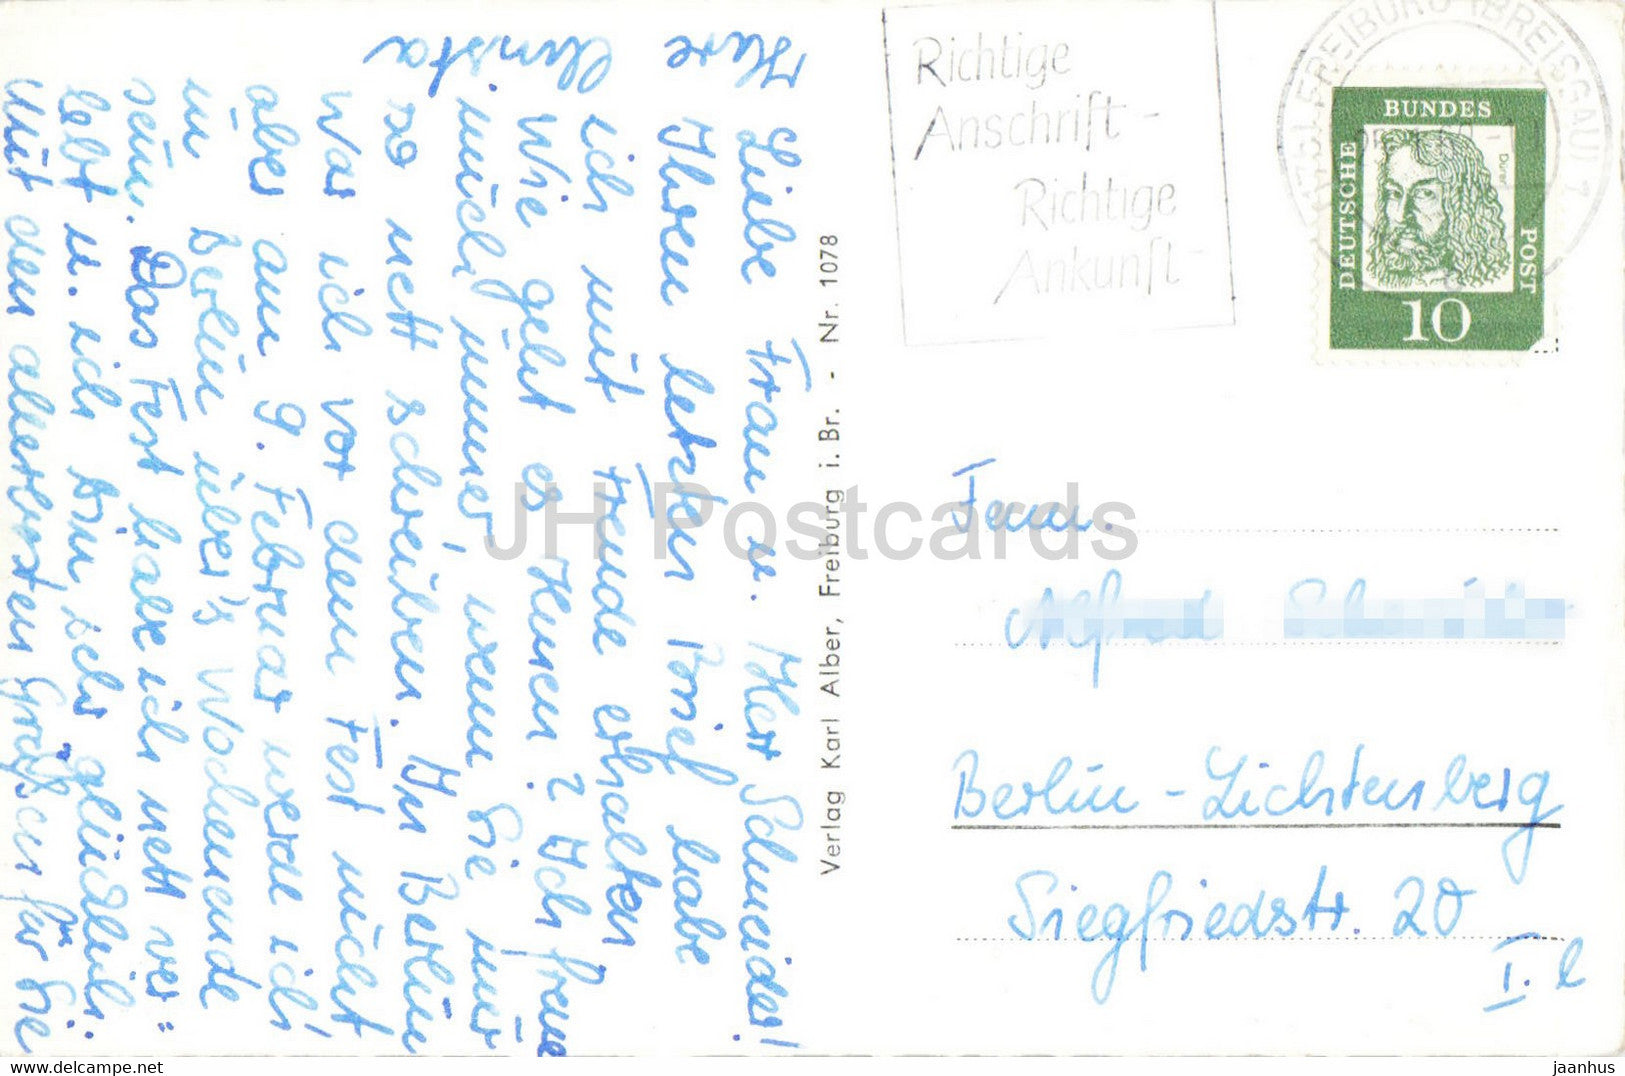 Liebe Frau u. Herr Schneider!
Ihren letzten Brief habe
ich mit Freude erhalten
Wie geht es Ihnen? Ich freue
mich immer, wenn Sie mir
so nett schreiben. In Berlin
war ich vor dem Fest nicht
aber am 9. Februar werde ich
in Berlin über's Wochenende
sein. Das Fest habe ich nett ver=
lebt u. ich bin sehr glücklich.
Mit den allerbesten Grüßen für Sie
Ihre
Christa
Verlag Karl Alber, Freiburg i. Br. - Nr. 1078
Richtige
Anschrift -
Richtige
Ankunft -
FREIBURG (BREISGAU) 1
DEUTSCHE
BUNDES
POST
Dürer
10
Fam.
Alfred
Berlin - Lichtenberg
Siegfriedstr. 20
I. l
JH Postcards
https://www.delcampe.net
jaanhus